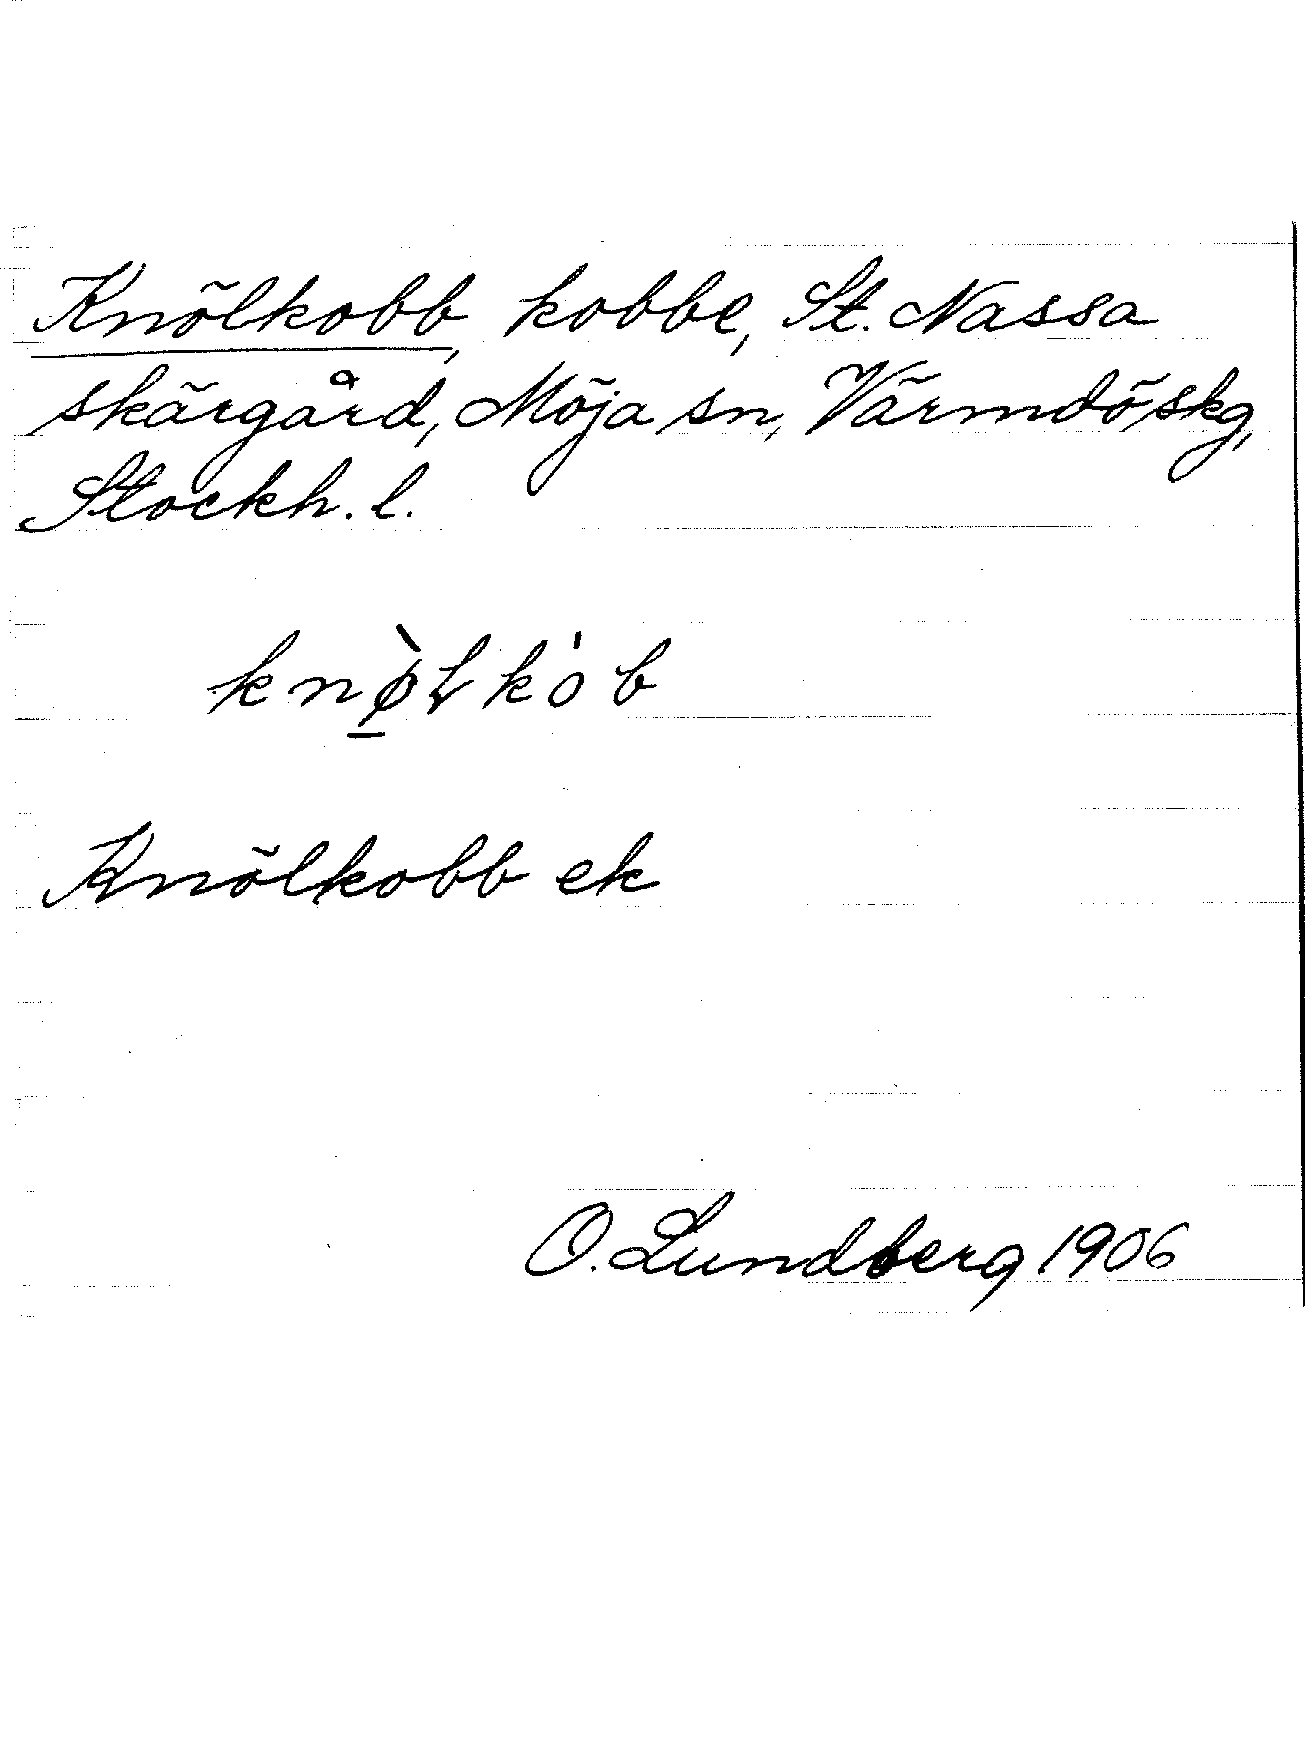 Knölkobb, kobbe, St. Nassa
skärgård, Möja sn, Värmdö skg,
Stockh. l.
knø̲̀ɫkȯb
Knölkobb ek
O. Lundberg 1906